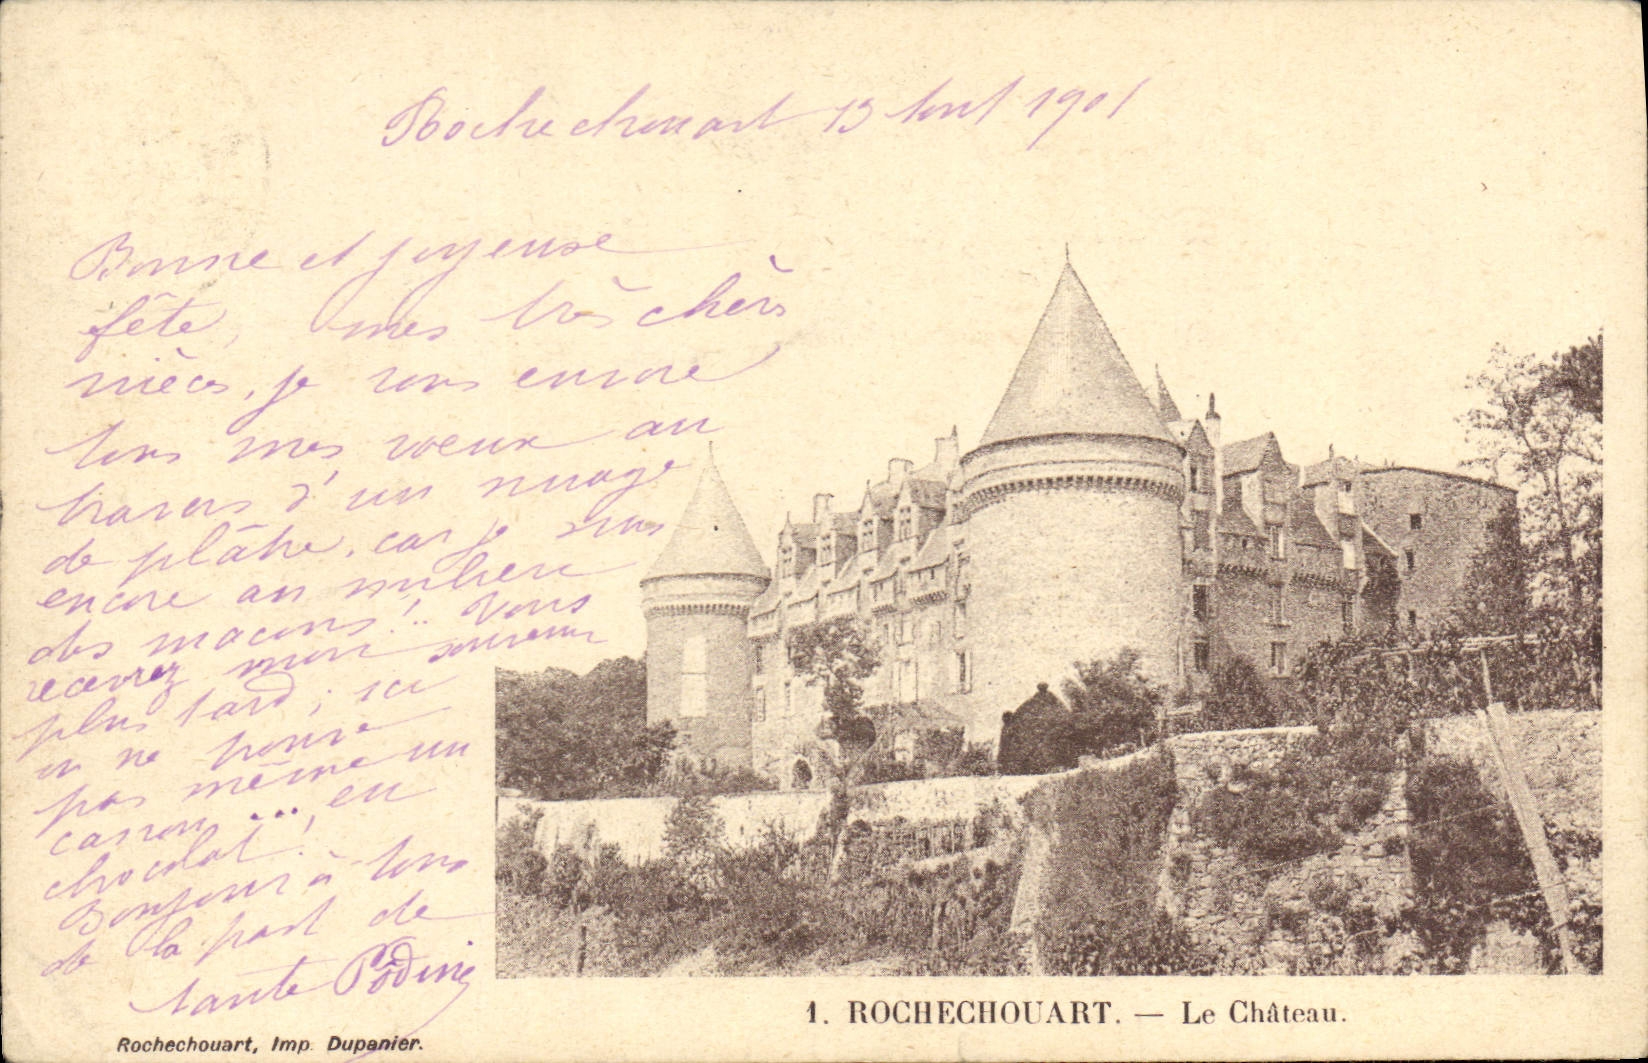 Rochechouart 13 Aout 1901
Bonne et joyeuse
fête, mes très chèrs
nièces, je vous envoie
tous mes voeux au
travers d'un nuage
de plâtre, car je suis
encore au milieu
des maçons!.. Vous
recevrez mon souvenir
plus tard; ici
on ne trouve
pas même un
canon ... en
chocolat!
Bonjour à tous
de la part de
tante
1. ROCHECHOUART. — Le Château.
Rochechouart, Imp. Dupanier.